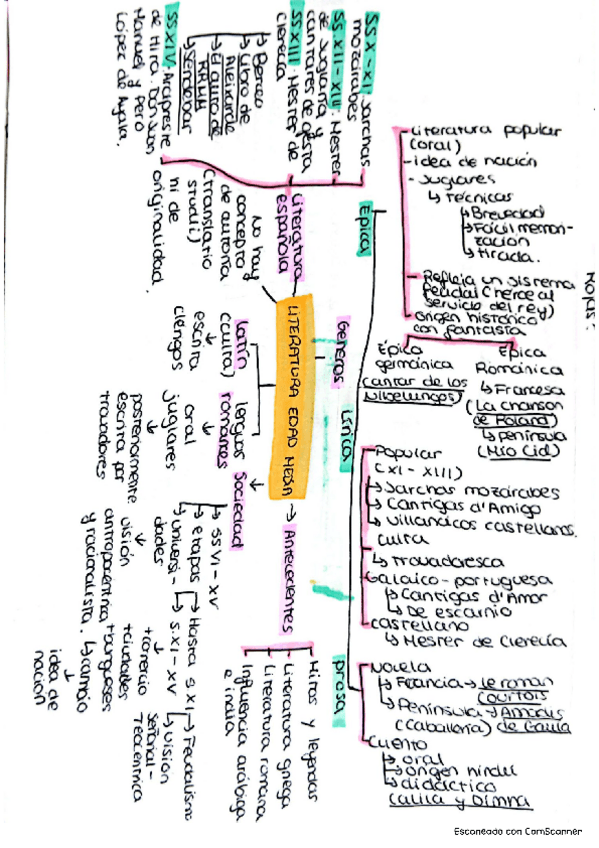 LITERATURA EDAD MEDIA
Literatura
española
SS X-XI Jarchas
mozárabes
SS. XII-XIII: Mester
de Juglaría y
cantares de gesta
SS XIII: Mester de
clerecía
Berceo
Libro de
Aleixandre
El auto de
RRMM
Sendebar
SS XIV: Arcipreste
de Hita. Don Juan
Manuel y Pero
López de Ayala.
No hay
concepto
de autoría
(translatio
studii)
ni de
originalidad.
Latín
(culta)
escrita
clérigos
lenguas
romances
oral
juglares
posteriormente
escrita por
trovadores
Sociedad
SS VI-XV
etapas
Hasta s. XI
Feudalismo
visión
señorial-
teocéntrica
S. XI-XV
comercio
+ciudades
+burgueses
cambio
idea de
nación
universi-
dades
visión
antropocéntrica
y racionalista.
Antecedentes
Mitos y leyendas
Literatura griega
Literatura romana
Influencia arábiga
e india
Géneros
Épica
Literatura popular
(oral)
-idea de nación
- Juglares
Técnicas
Brevedad
Fácil memori-
zación
tirada.
Refleja un sistema
feudal (héroe al
servicio del rey)
origen histórico
con fantasía
Épica
germánica
(cantar de los
Nibelungos)
Épica
Románica
Francesa
(La chanson
de Roland)
Península
(Mío Cid)
Lírica
Popular
(XI-XIII)
Jarchas mozárabes
Cantigas d'Amigo
Villancicos castellanos.
Culta
Trovadoresca
Galaico-portuguesa
Cantigas d'Amor
De escarnio
Castellano
Mester de Clerecía
prosa
Novela
Francia → Le roman
courtois
Península → Amadís
(Caballería) de Gaula
Cuento
oral
origen hindú
didáctico
Calila y Dimna
Escaneado con CamScanner